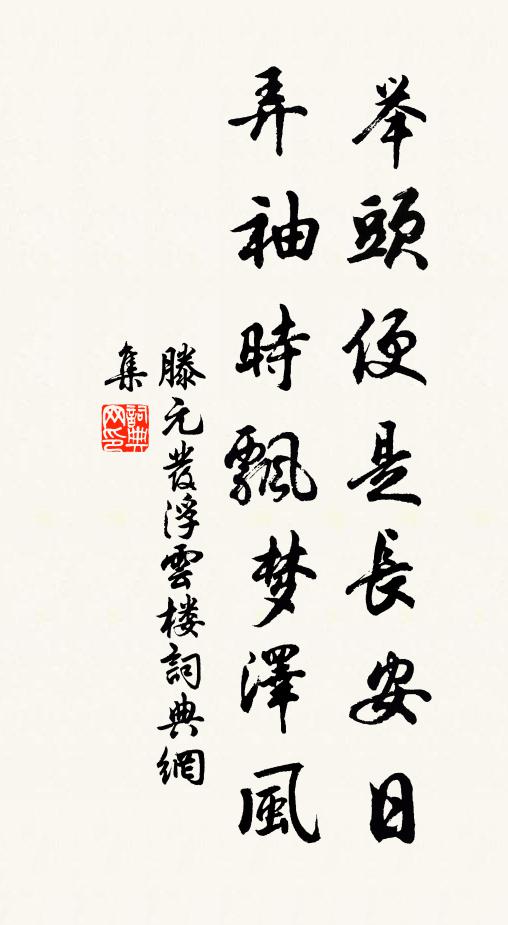 举頭便是長安日
弄袖時飄梦澤風
滕元发浮雲楼詞典網
集
詞典网印